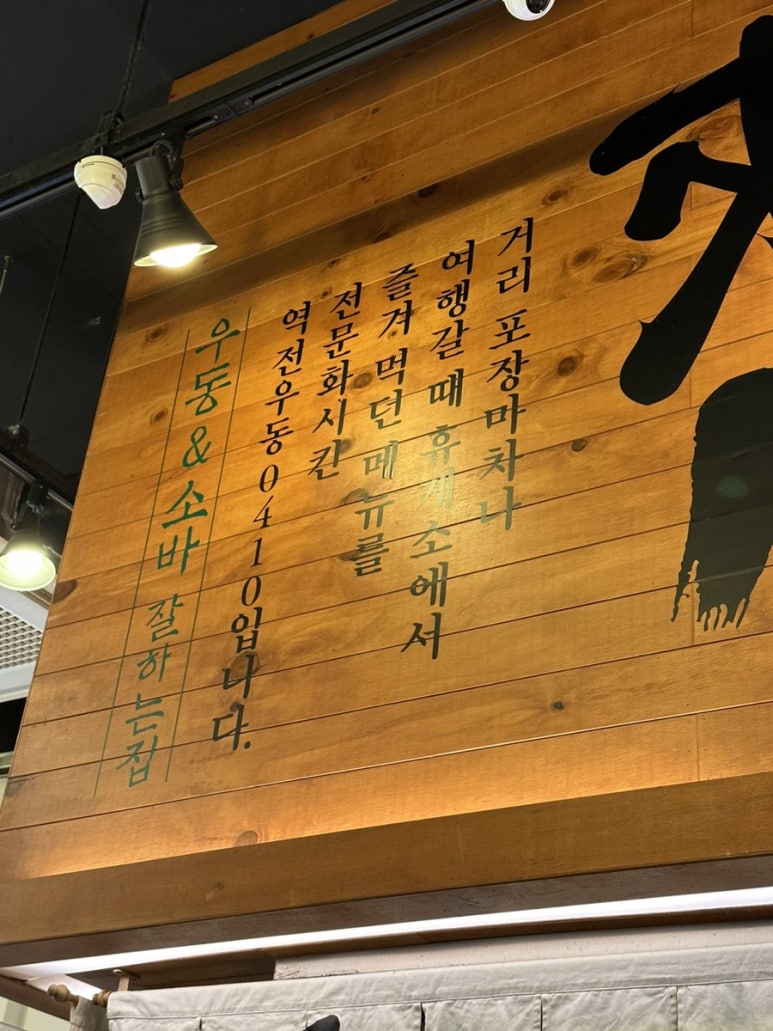 거리 포장마차나
여행갈 때 휴게소에서
즐겨 먹던 메뉴를
전문화시킨
역전우동0410입니다.
우동&소바 잘하는집